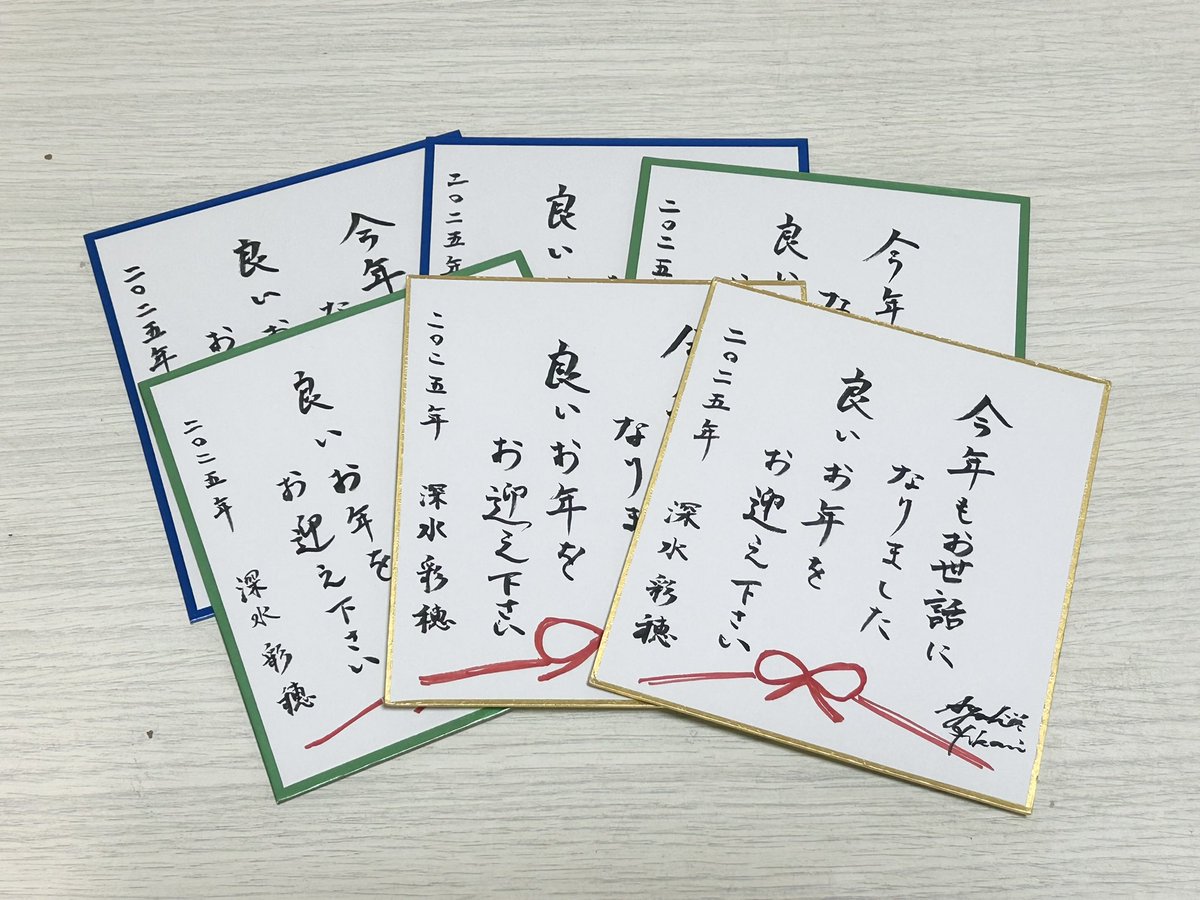 今年
な
良いお
お
二〇二五年
良い
二〇二五年
今年
な
良い
二〇二五
良いお年を
お迎え下さい
二〇二五年 深水彩穂
今
なりま
良いお年を
お迎え下さい
二〇二五年 深水彩穂
今年もお世話に
なりました
良いお年を
お迎え下さい
二〇二五年 深水彩穂